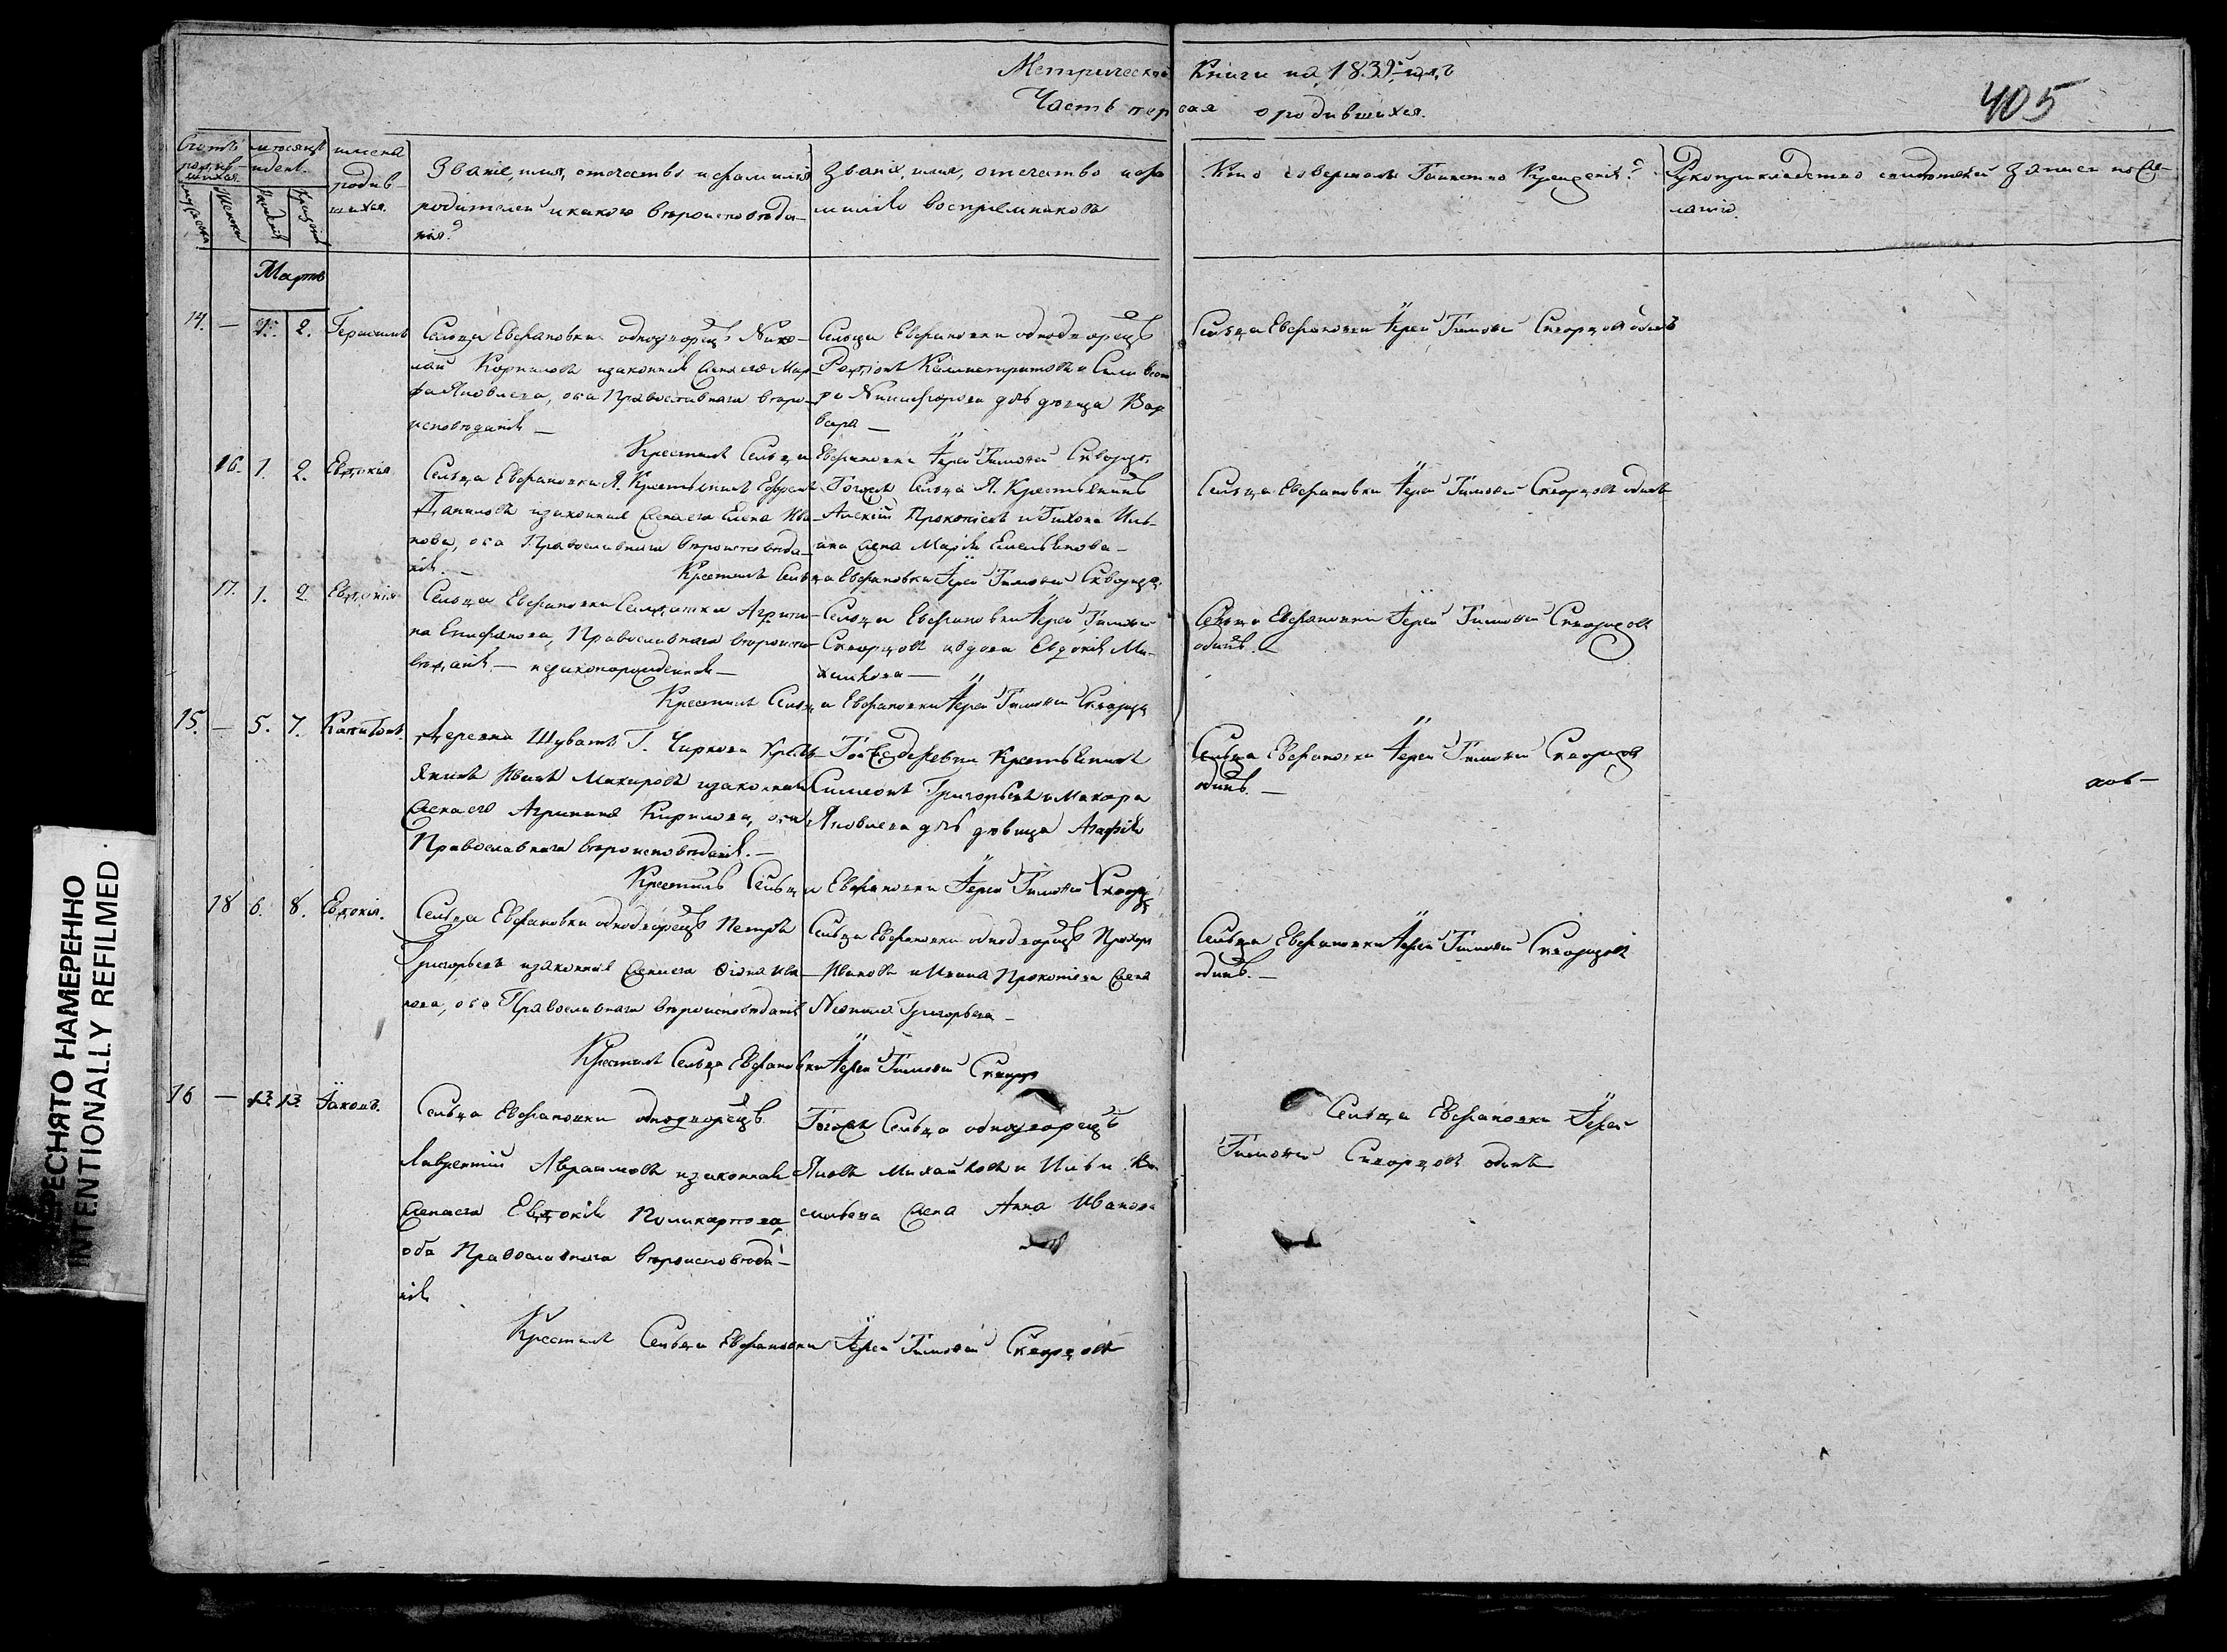 Метрической Книги на 1839-й годъ
Часть первая о родившихся.
405
Счетъ родив-
шихся.
мужеска
женска
месяцъ
и день.
Рожденія
Крещенія
имена
родив-
шихся.
Званіе, имя, отчество и фамилія
родителей и какого вѣроисповѣда-
нія?
Званіе, имя, отчество и фа
милія воспріемниковъ
Кто совершалъ Таинство Крещенія?
Рукоприкладство свидѣтелей записи по же-
ланію.
Мартъ
14. — 1. 2. Герасимъ
Сельца Евфановки однодворецъ Нико-
лай Корниловъ и законная жена его Мар-
фа Яковлева, оба Православнаго вѣро-
исповѣданія —
Сельца Евфановки однодворецъ
Родіонъ Калистратовъ и Сильвест
ра Никифорова дочь дѣвица Вар
вара —
Сельца Евфановки Іерей Тимофей Скворцовъ одинъ
Крестилъ Сельца Евфановки Іерей Тимофей Скворцо
16. 1. 2. Евдокія
Сельца Евфановки Я. Крестьянинъ Ефремъ
Даниловъ и законная жена его Елена Ива-
нова, оба Православнаго вѣроисповѣда-
нія. —
Тогожъ Сельца Я. Крестьянинъ
Алексій Прокопіевъ и Тихона Иль-
ина жена Марія Емельянова —
Сельца Евфановки Іерей Тимофей Скворцовъ одинъ
Крестилъ Сельца Евфановки Іерей Тимофей Скворцо
17. 1. 2. Евдокія
Сельца Евфановки Солдатка Агрипи-
на Епифанова, Православнаго вѣроиспо-
вѣданія — незаконорожденная —
Сельца Евфановки Іерей Тимофей
Скворцовъ и вдова Евдокія Ми-
хайлова —
Сельца Евфановки Іерей Тимофей Скворцовъ
одинъ. —
Крестилъ Сельца Евфановки Іерей Тимофей Скворцо
15. — 5. 7. Капитонъ.
Деревни Шувать Г. Чиркова Крестъ-
янинъ Иванъ Макаровъ и законная
жена его Агрипина Кирилова, оба
Православнаго вѣроисповѣданія. —
Тойже деревни Крестьянинъ
Симеонъ Григорьевъ и Макара
Яковлева дочь дѣвица Агафія
Сельца Евфановки Іерей Тимофей Скворцовъ
одинъ. —
Крестилъ Сельца Евфановки Іерей Тимофей Скворц
18 6. 8. Евдокія.
Сельца Евфановки однодворецъ Петръ
Григорьевъ и законная жена его Фіона Ива-
нова, оба Православнаго вѣроисповѣданія
Сельца Евфановки однодворецъ Прохоръ
Ивановъ и Ивана Прокопіева жена
Неонила Григорьева —
Сельца Евфановки Іерей Тимофей Скворцовъ
одинъ. —
Крестилъ Сельца Евфановки Іерей Тимофей Скворцо
16 — 13 13. Іаковъ.
Сельца Евфановки однодворецъ
Лаврентій Авраамовъ и законная
жена его Евдокія Поликарпова,
оба Православнаго вѣроисповѣда-
нія
Тогожъ Сельца однодворецъ
Яковъ Михайловъ и Ильи Ва
сильева жена Анна Иванова
Сельца Евфановки Іерей
Тимофей Скворцовъ одинъ
Крестилъ Сельца Евфановки Іерей Тимофей Скворцовъ
ПЕРЕСНЯТО НАМЕРЕННО
INTENTIONALLY REFILMED.